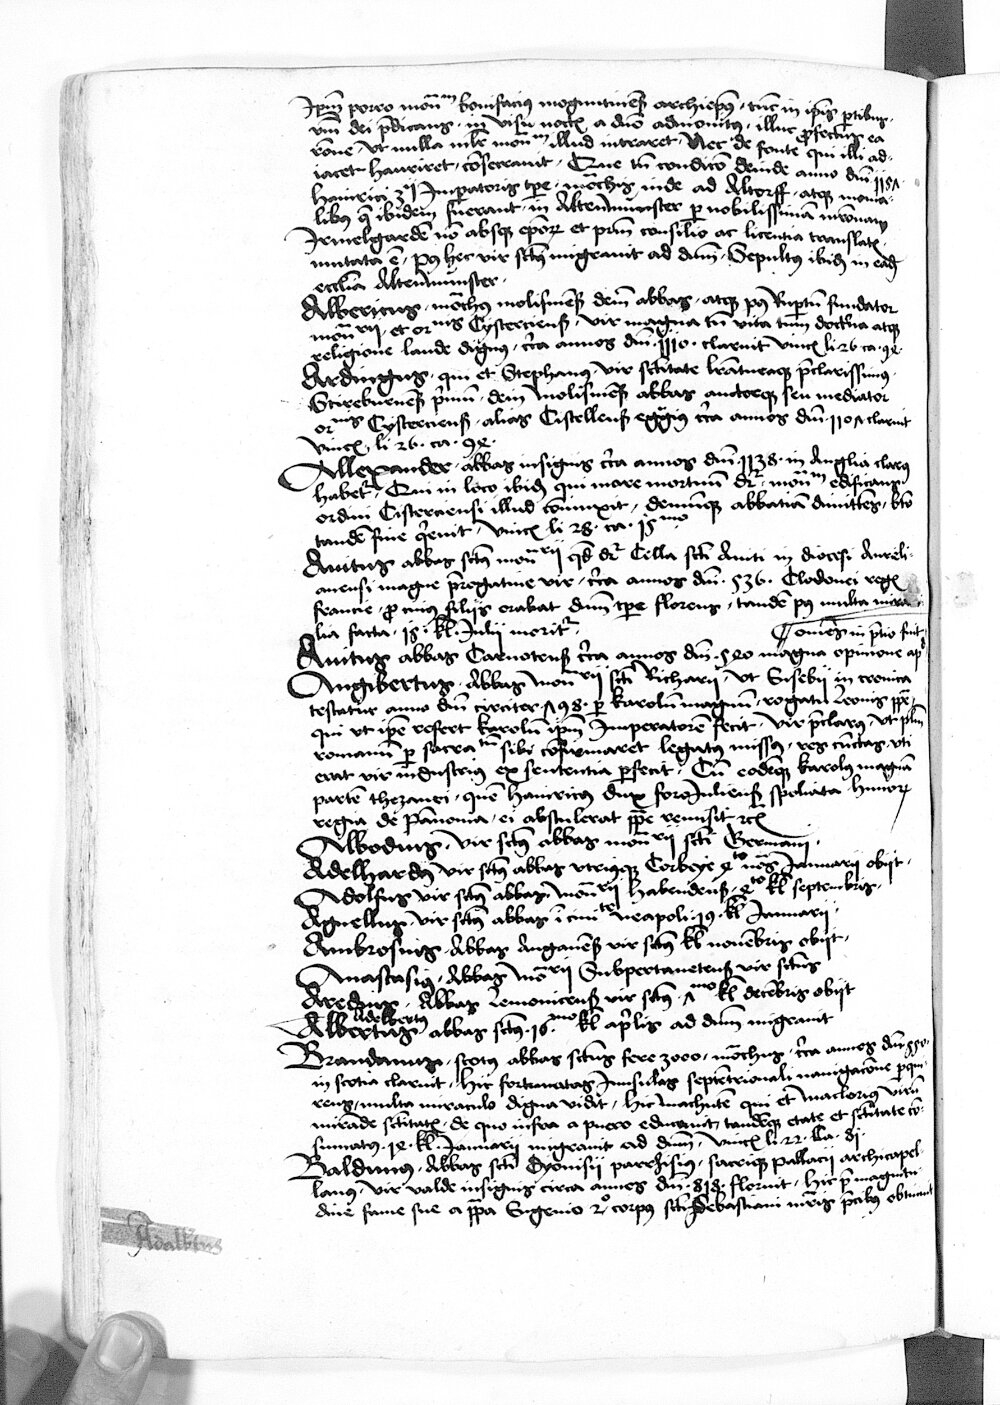 Ipm̄ porro mon̄m bonifacius moguntineñ archiep̄us, tūc in ip̄is p̄tibus
vm̄ dei p̄dicans, in visu nocte a dn̄o admonitus, illuc profectus ea
rōne, vt nulla mlr̄ mon̄m illud intraret, Nec de fonte qui illi ad-
iacet hauriret, cōsecrauit, Que tn̄ condicō deinde anno dn̄i 115
hainrici 3ii Imp̄atoris tp̄e, mōchis inde ad Altorff, atq̄ monia-
libus q̄ ibidem fuerant, in Altenmunster p nobilissimā mrōnam
Irmelgardē nō absq̄ ep̄oꝝ et p̄m consilio ac licentia translatis
mutata ē, post hec vir sctūs migrauit ad dn̄m, Sepultus ibidē in eadē
eccl̄ia Altenmunster.
Albericus, mōchus molismeñ dein̄ abbas, atq̄ post Rup̄tū fundator
mon̄rii, et orīnis Cysterciens̄, vir magna tū vita tum doctrīa atq̄
religione laude dignus, circa annos dn̄i 1110 claruit vincē li 26 ca 92
Ardingus, qui et Stephanus, vir sctītate lrātureq̄ p̄clarissimus,
Stirebureneñ primū, dein molismeñ abbas auctorq̄ seu mediator
orīnis Cysterciens̄, alias Cistellens̄ egregius circa annos dn̄i 110 claruit
vincē li 26 ca 92
Allexander, abbas insignis circa annos dn̄i 1138 in Anglia clarus
habetr̄, Qui in loco ibidē qui mare mortuum dr̄, mon̄m edificans
ordini Cisterciensi illud coniunxit, demumq̄ abbatiā dimittēs, bt̄o
tandē fine quieuit, vincē li 28 ca 15mo
Auitus abbas sctūs mon̄rii qd̄ dr̄ Cella scti Auiti in diocesi Aureli-
anensi magne prerogatiue vir, circa annos dn̄i 536 Clodouei regis
francie, pro cuius filiis orabat dum tp̄e florens, tandē post multa mira-
lia facta, 15 kl̄ Iulii moritr̄.
Auitus abbas Carnotens̄ circa annos dn̄i 520 magna opinione ap̄d
omēs in p̄tio fuit
Angibertus, Abbas mon̄rii scti Richarii, vt Sisebii in cronica
testatur anno dn̄i circiter 798 p karolum magnū, rogatu leonis pp̄e
qui vt ip̄e refert karolū ip̄m Imperatorē fecit, vir p̄clarus, vt p̄lm̄
romanum p sacra tm̄ sibi cōfirmaret legatus missus, res cūctas vti
erat vir industrius ex sententia p̄fecit, Cui eodēq̄ karolus magnā
partē thezauri, quē hainricus dux foroiuliens̄ spoliata hunoꝝ
regia de Pānonia, ei abstulerat pp̄e remisit etc̄
Albodius, vir sctūs abbas mon̄rii scti Germani,
Adelhardus vir sctūs abbas vtriusq̄ Corbeye 4to nōas Ianuarii obiit,
Adolfus vir sctūs abbas mon̄rii habendens̄, 4to kl̄ septembris,
Agnellus, vir sctūs abbas ī ciuite neapoli 19 kl̄ Ianuarii,
Ambrosius, Abbas Auganeñ vir sctūs kl̄ nouēbris obiit,
Anastasius, Abbas mōrii Subpertanetens̄ vir sctūs
Aredius, Abbas lemouicens̄ vir sctūs 7mo kl̄ decēbris obiit
Adelbertus
Albertus, abbas sctūs 16mo kl̄ aprilis ad dn̄m migrauit
Brandanus, scotus abbas sctūs fere 3000 mōchus, circa annos dn̄i 550
in scotia claruit, Hic fortunatas Insulas septētrionali nauigacōne pqui-
rens, multa miraculo digna vidit, hic machutē qui et maclouius virū
mirāde sctītatis, de quo infra a puero educauit, tandēq̄ etate et sctītate cō-
sumatus 12 kl̄ Ianuarii migrauit ad dn̄m, vincē li 22 ca 81
Balduinus, Abbas scti Dyonisii parhisius, sacriq̄ pallacii archicapel-
lanus, vir valde insignis circa annos dn̄i 818 floruit, hic p̄ magnitu
dine fame sue a pp̄a Eugenio 2o corpus scti Sebastiani mr̄is p̄cibus obtinuit
Adalbtus